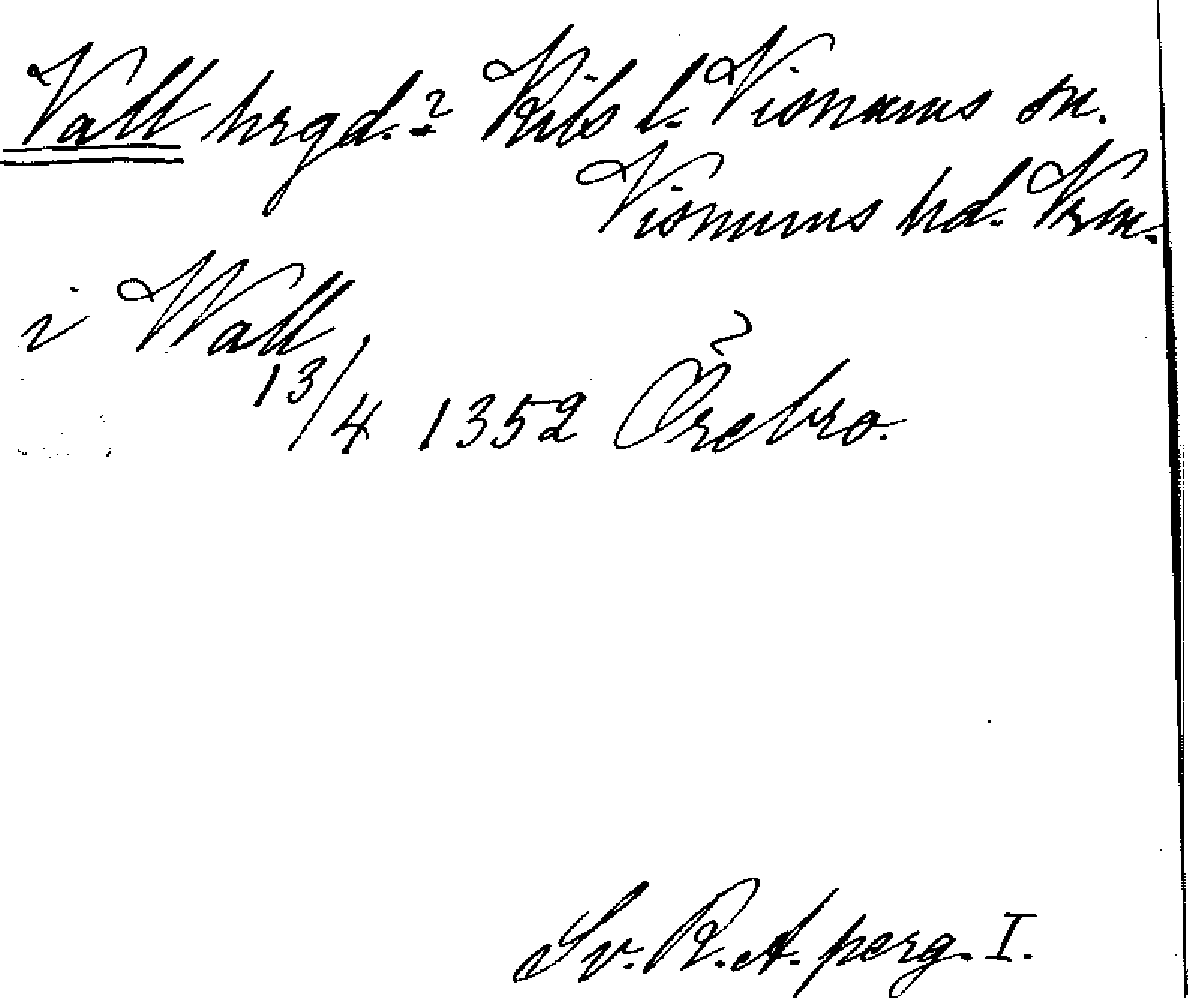 Vall hrgd.? Kils l. Visnums sn.
Visnums hd. Vrm.
i Wall
13/4 1352 Örebro.
Sv. R. A. perg. I.